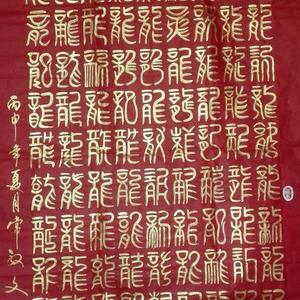 龍龍龍龍龍龍龍
龍龍龍龍龍龍龍
龍龍龍龍龍龍龍
龍龍龍龍龍龍龍
龍龍龍龍龍龍龍
龍龍龍龍龍龍龍
龍龍龍龍龍龍龍
龍龍龍龍龍龍龍
龍龍龍龍龍龍龍
丙申年夏月常文